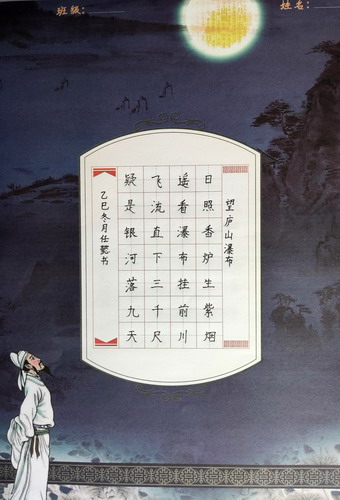 班级：
姓名：
望庐山瀑布
日照香炉生紫烟
遥看瀑布挂前川
飞流直下三千尺
疑是银河落九天
乙巳冬月任懿书